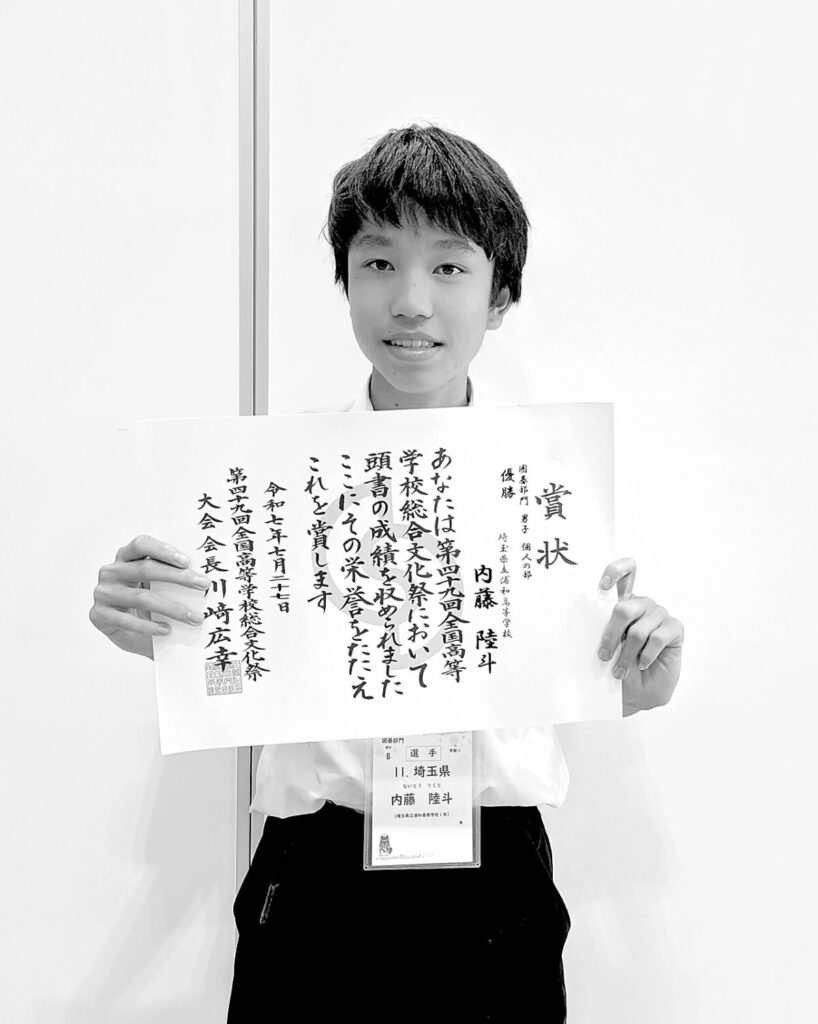 賞状
囲碁部門 男子 個人の部
優勝
埼玉県立浦和高等学校
内藤 陸斗
あなたは第四十九回全国高等
学校総合文化祭において
頭書の成績を収められました
ここにその栄誉をたたえ
これを賞します
令和七年七月二十七日
第四十九回全国高等学校総合文化祭
大会会長 川﨑広幸
囲碁部門
B
選手
11. 埼玉県
ないとう りくと
内藤 陸斗
(埼玉県立浦和高等学校1年)